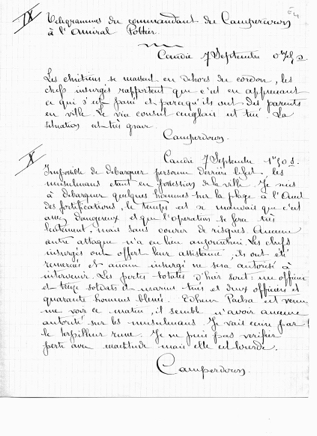 IX Télégrammes du commandant du Camperdown
à l'Amiral Pottier
Candie 7 Septembre
Les chrétiens se massent en dehors du cordon, les
chefs insurgés rapportent que c'est en apprenant
ce qui s'est passé et parce qu'ils ont des parents
en ville. Le vice consul anglais est tué. La
situation est très grave.
Camperdown.
X
Candie 7 Septembre
Impossible de débarquer personne derrière les
musulmans étant en possession de la ville. Je
à débarquer quelques hommes sur la plage à l'Ouest
des fortifications, le temps est si mauvais que c'est
assez dangereux et que l'opération se fera très
lentement, mais sans courir de risques. Aucune
autre attaque n'a eu lieu aujourd'hui. Les chefs
insurgés ont offert leur assistance, ils ont été
remerciés et aucun insurgé ne sera autorisé à
intervenir. Les pertes totales d'hier sont un officier
et treize soldats et marins tués et deux officiers et
quarante hommes blessés. Edhem Pacha est venu
me voir ce matin, il semble n'avoir aucune
autorité sur les musulmans. Je vais vous
le torpilleur russe. Je ne puis pas vérifier
perte avec exactitude mais elle est lourde.
Camperdown.